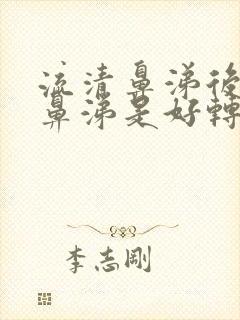 流清鼻涕後
鼻涕是好轉
李志剛